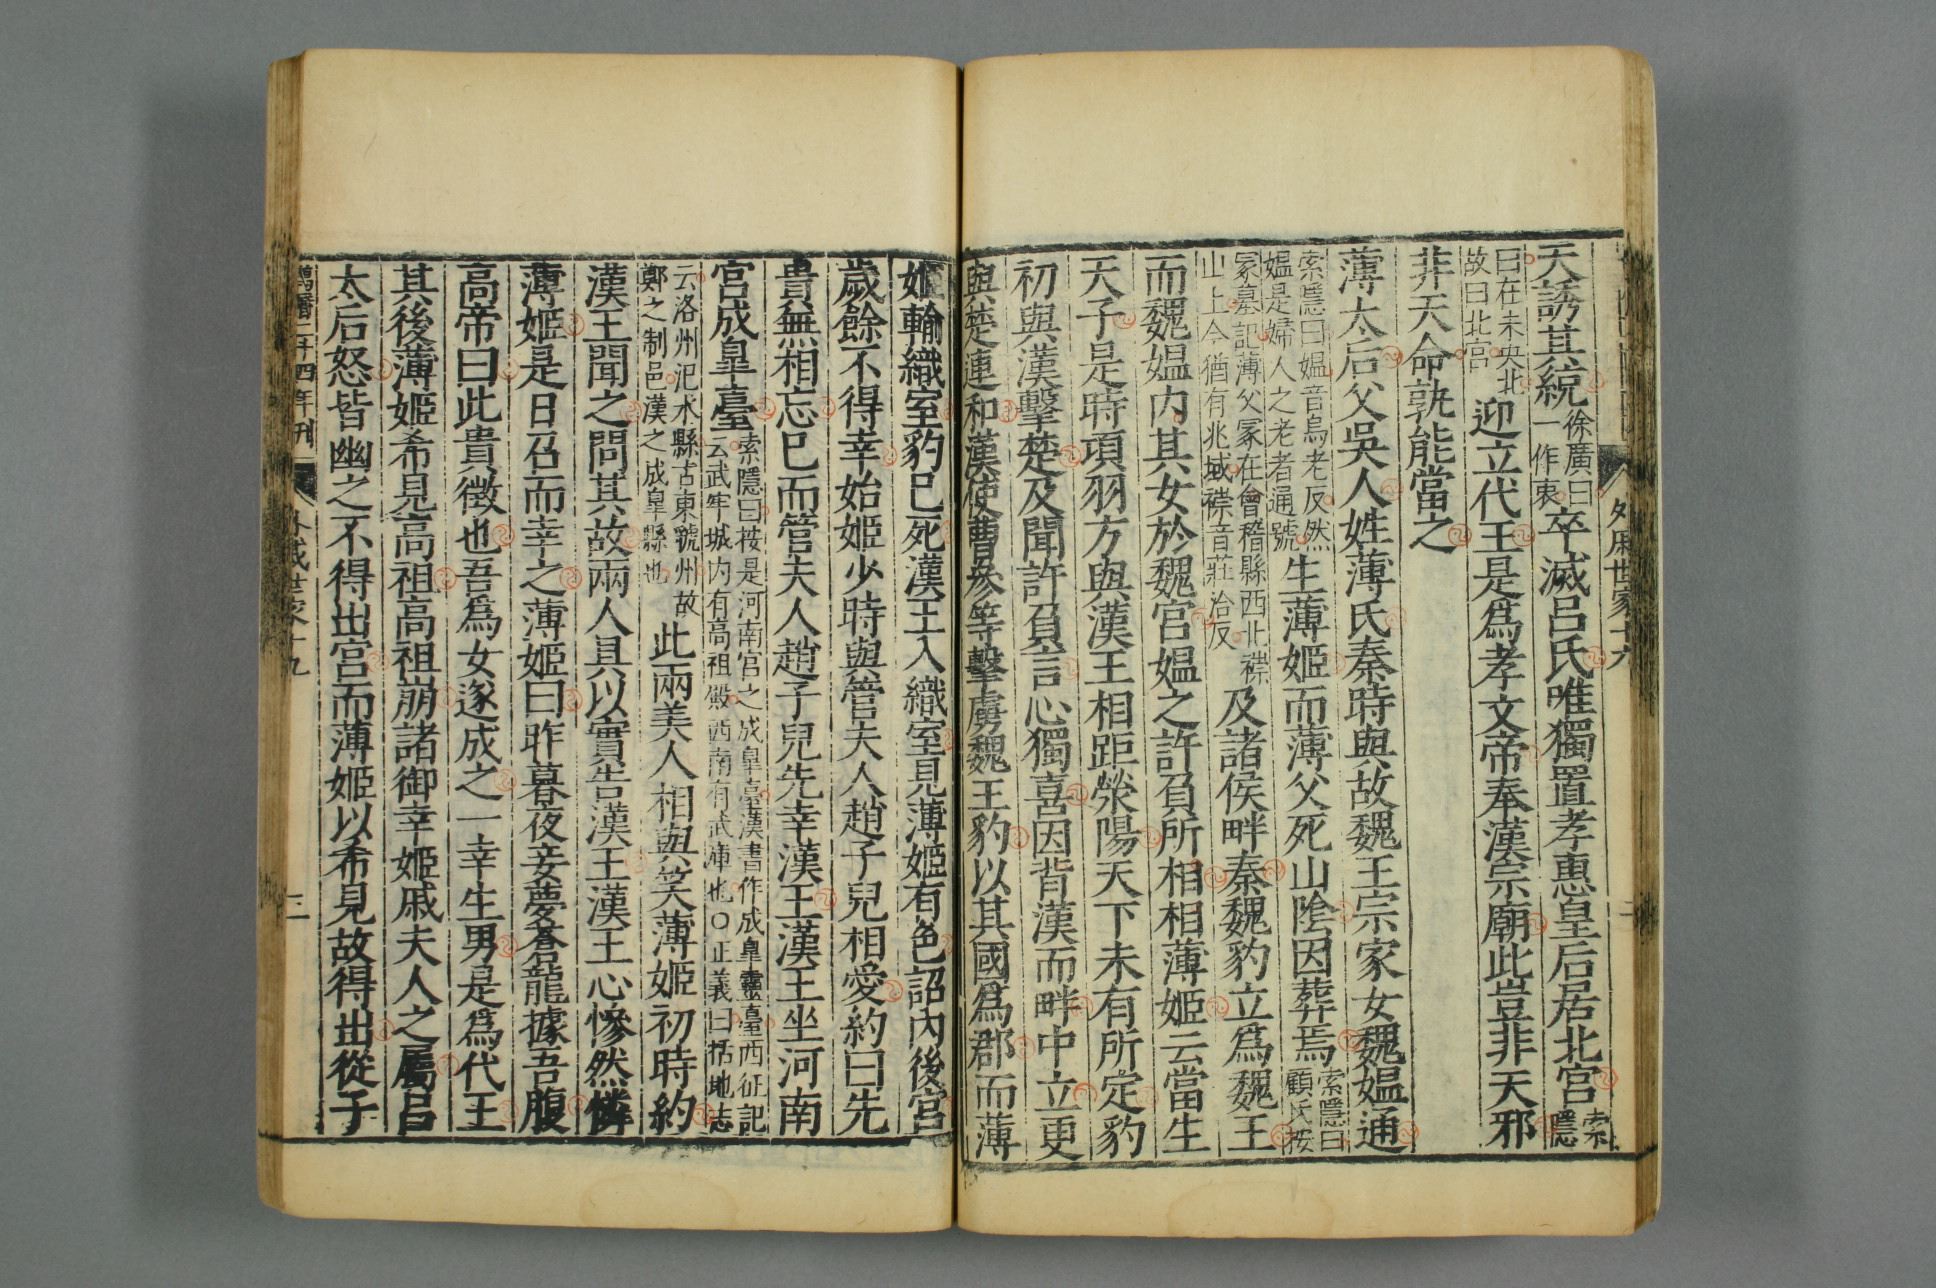 外戚世家十九
天誘其統徐廣曰一作衷卒滅呂氏唯獨置孝惠皇后居北宮索隱
曰在未央北故曰北宮迎立代王是爲孝文帝奉漢宗廟此豈非天邪
非天命孰能當之
薄太后父吳人姓薄氏秦時與故魏王宗家女魏媪通
索隱曰媪音烏老反然媪是婦人之老者通號生薄姬而薄父死山陰因葬焉索隱曰顧氏按
冢墓記薄父冢在會稽縣西北襟山上今猶有兆域襟音莊洽反及諸侯畔秦魏豹立爲魏王
而魏媪內其女於魏宮媪之許負所相相薄姬云當生
天子是時項羽方與漢王相距滎陽天下未有所定豹
初與漢擊楚及聞許負言心獨喜因背漢而畔中立更
與楚連和漢使曹參等擊虜魏王豹以其國爲郡而薄
姬輸織室豹已死漢王入織室見薄姬有色詔內後宮
歲餘不得幸始姬少時與管夫人趙子兒相愛約曰先
貴無相忘已而管夫人趙子兒先幸漢王漢王坐河南
宮成皋臺索隱曰按是河南宮之成皋臺漢書作成皋靈臺西征記云武牢城內有高祖殿西南有武庫也○正義曰括地志
云洛州汜水縣古東虢州故鄭之制邑漢之成皋縣也此兩美人相與笑薄姬初時約
漢王聞之問其故兩人具以實告漢王漢王心慘然憐
薄姬是日召而幸之薄姬曰昨暮夜妾夢蒼龍據吾腹
高帝曰此貴徵也吾爲女遂成之一幸生男是爲代王
其後薄姬希見高祖高祖崩諸御幸姬戚夫人之屬呂
太后怒皆幽之不得出宮而薄姬以希見故得出從子
萬曆二十四年刊 外戚世家十九 三